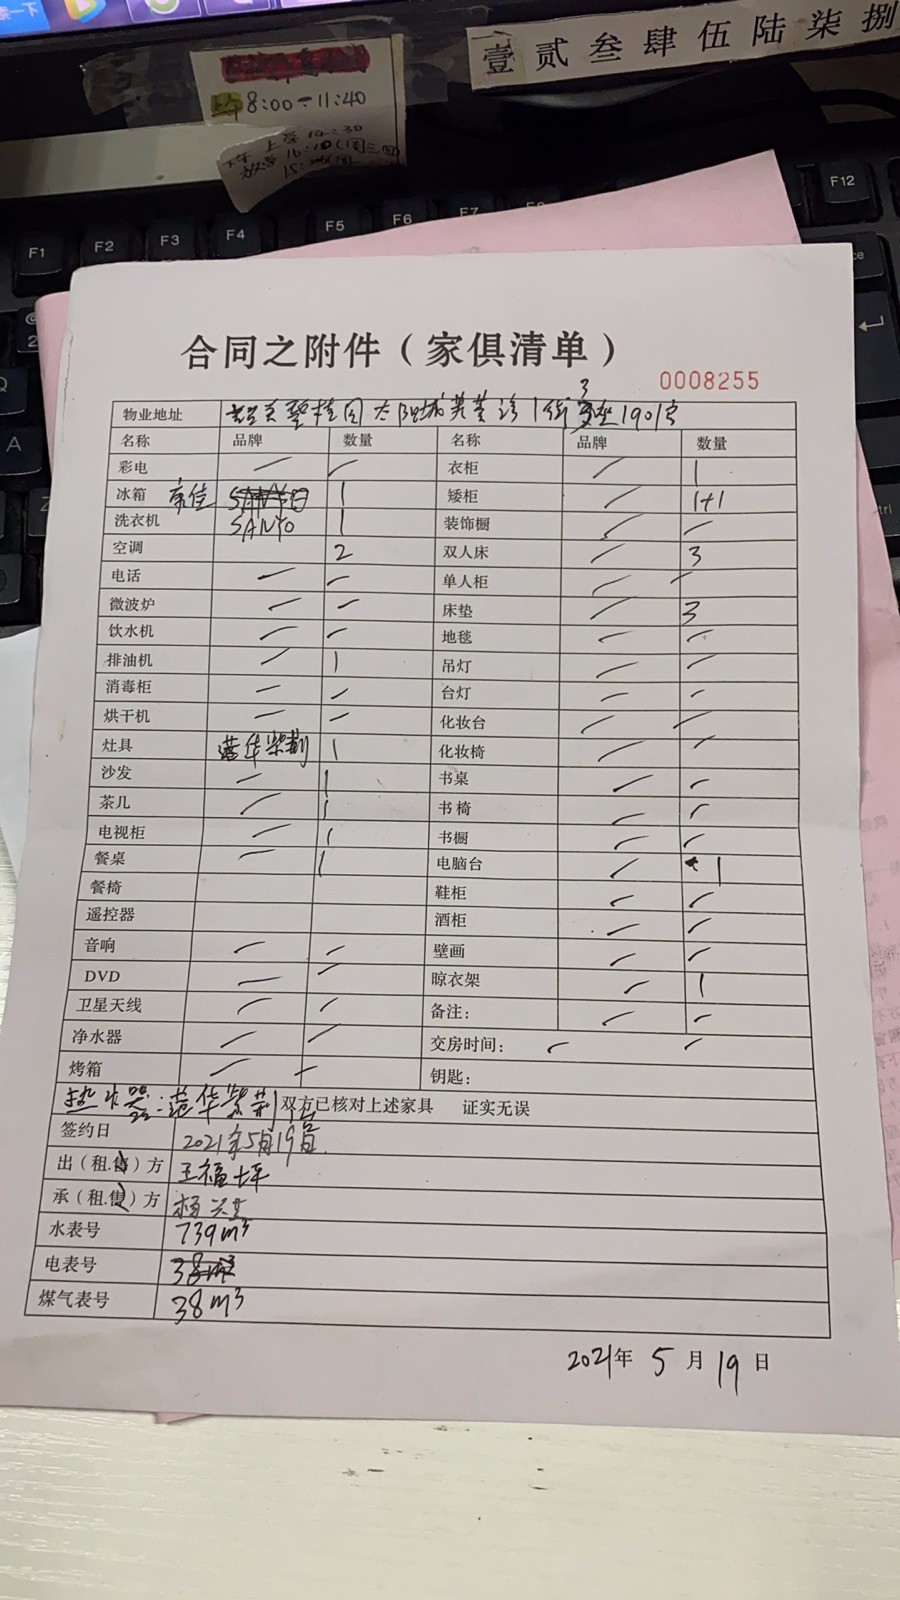 一下
壹 贰 叁 肆 伍 陆 柒 捌
8:00-11:40
上学 14:30
F1 F2 F3 F4 F5 F6 F7 F12
合同之附件（家俱清单）
0008255
物业地址 碧桂园太阳城芙蓉 1街 3座1901房
名称 品牌 数量 名称 品牌 数量
彩电 / / 衣柜 / 1
冰箱 1 矮柜 / 1+1
洗衣机 SANYO 1 装饰橱 / /
空调 2 双人床 / 3
电话 / / 单人柜 / /
微波炉 / / 床垫 / 3
饮水机 / / 地毯 / /
排油机 / 1 吊灯 / /
消毒柜 / / 台灯 / /
烘干机 / / 化妆台 / /
灶具 港华紫荆 1 化妆椅 / /
沙发 / 1 书桌 / /
茶几 / 1 书椅 / /
电视柜 / 1 书橱 / /
餐桌 / 1 电脑台 / 1
餐椅 鞋柜 / /
遥控器 酒柜 / /
音响 / / 壁画 / /
DVD / / 晾衣架 / 1
卫星天线 / / 备注： / /
净水器 / / 交房时间： / /
烤箱 / / 钥匙：
热水器：港华紫荆 1台 双方已核对上述家具 证实无误
签约日 2021年5月19日
出（租.售）方 王福坪
承（租.售）方 杨
水表号 739m³
电表号
煤气表号 38m³
2021年 5 月 19 日